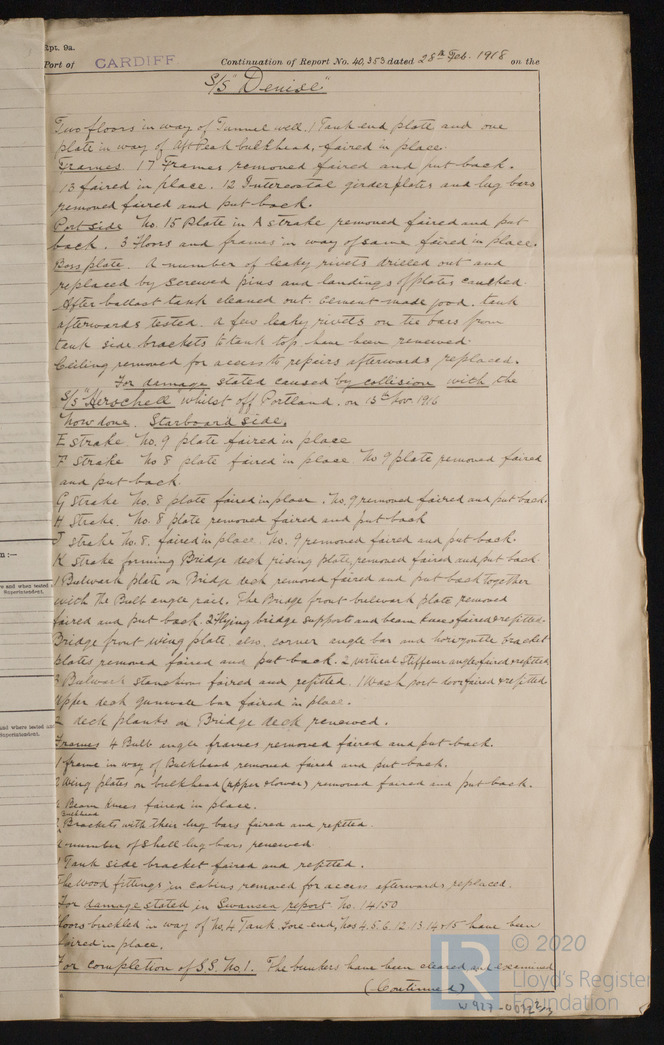 Rpt. 9a.
Port of CARDIFF. Continuation of Report No. 40,353 dated 28th Feb. 1918 on the
S/S "Denise"
Two floors in way of Tunnel well. 1 Tank end plate and one
plate in way of Aft Peak bulkhead, faired in place.
Frames. 17 Frames removed faired and put back.
13 faired in place. 12 Intercostal girder plates and lug bars
removed faired and put back.
Port side No. 15 Plate in A strake removed faired and put
back. 3 Floors and frames in way of same faired in place.
Boss plate. A number of leaky rivets drilled out and
replaced by screwed pins and landings of plates caulked.
After ballast tank cleaned out. Cement made good. tank
afterwards tested. A few leaky rivets on tie bars from
tank side brackets to tank top have been renewed.
Ceiling removed for access to repairs afterwards replaced.
For damage stated caused by collision with the
S/S "Herschell" whilst off Portland. on 13th Nov. 1916
Now done. Starboard side.
E strake. No. 9 plate faired in place
F strake No 8 plate faired in place No 9 plate removed faired
and put back.
G strake No. 8 plate faired in place. No. 9 removed faired and put back.
H strake. No. 8 plate removed faired and put back
J strake No. 8. faired in place. No. 9 removed faired and put back.
K strake forming Bridge deck rising plate, removed faired and put back.
1 Bulwark plate on Bridge deck removed faired and put back together
with the Bulb angle rail. The Bridge front bulwark plate removed
faired and put back. 2 flying bridge supports and beam knees faired & refitted.
Bridge front wing plate. also. corner angle bar and horizontal bracket
plates removed faired and put back. 2 vertical stiffener angles faired & refitted
Bulwark stanchions faired and refitted. 1 Wash port door faired & refitted
Upper deck gunwale bar faired in place.
deck planks on Bridge deck renewed.
Frames 4 Bulb angle frames removed faired and put back.
1 frame in way of Bulkhead removed faired and put back.
2 Wing plates on bulkhead (upper & lower) removed faired and put back.
Beam knees faired in place.
Bulkhead
Brackets with their lug bars faired and refitted.
A number of shell lug bars renewed.
1 Tank side bracket faired and refitted.
The wood fittings in cabins removed for access afterwards replaced.
For damage stated in Swansea report No. 14150
Floors buckled in way of No. 4 Tank. Fore end, Nos 4. 5. 6. 12. 13. 14 & 15 have been
faired in place.
For completion of S.S. No. 1. The bunkers have been cleared and examined
(Continued)
W927-0072 2/3
n:—
re and when tested
Superintendent.
and where tested and
Superintendent.
LR
© 2020
Lloyd's Register
Foundation